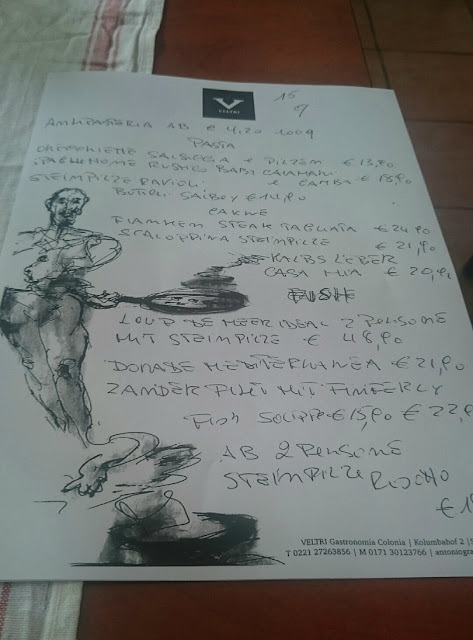 VELTRI
15
9
ANTIPASTERIA AB € 4,20 100g
PASTA
ORECCHIETTE SALSICCIA e PILZEN € 13,90
BABY CALAMARI e GAMBA € 15,90
STEINPILZE RAVIOLI
BUTTER SALBEY € 14,90
CARNE
FLAMMEN STEAK TAGLIATA € 24,90
SCALOPPINA STEINPILZE € 21,90
KALBS LEBER
CASA MIA € 20,90
FISH
LOUP DE MEER IDEAL 2 PERSONE
MIT STEINPILZE € 48,90
DORADE MEDITERRANEA € 21,90
ZANDER FILET MIT
FISH € 15,90 € 22,9
AB 2 PERSONE
STEINPILZE RISOTTO
€ 1
VELTRI Gastronomia Colonia | Kolumbahof 2 | 5
T 0221 27263856 | M 0171 30123766 | antoniogra